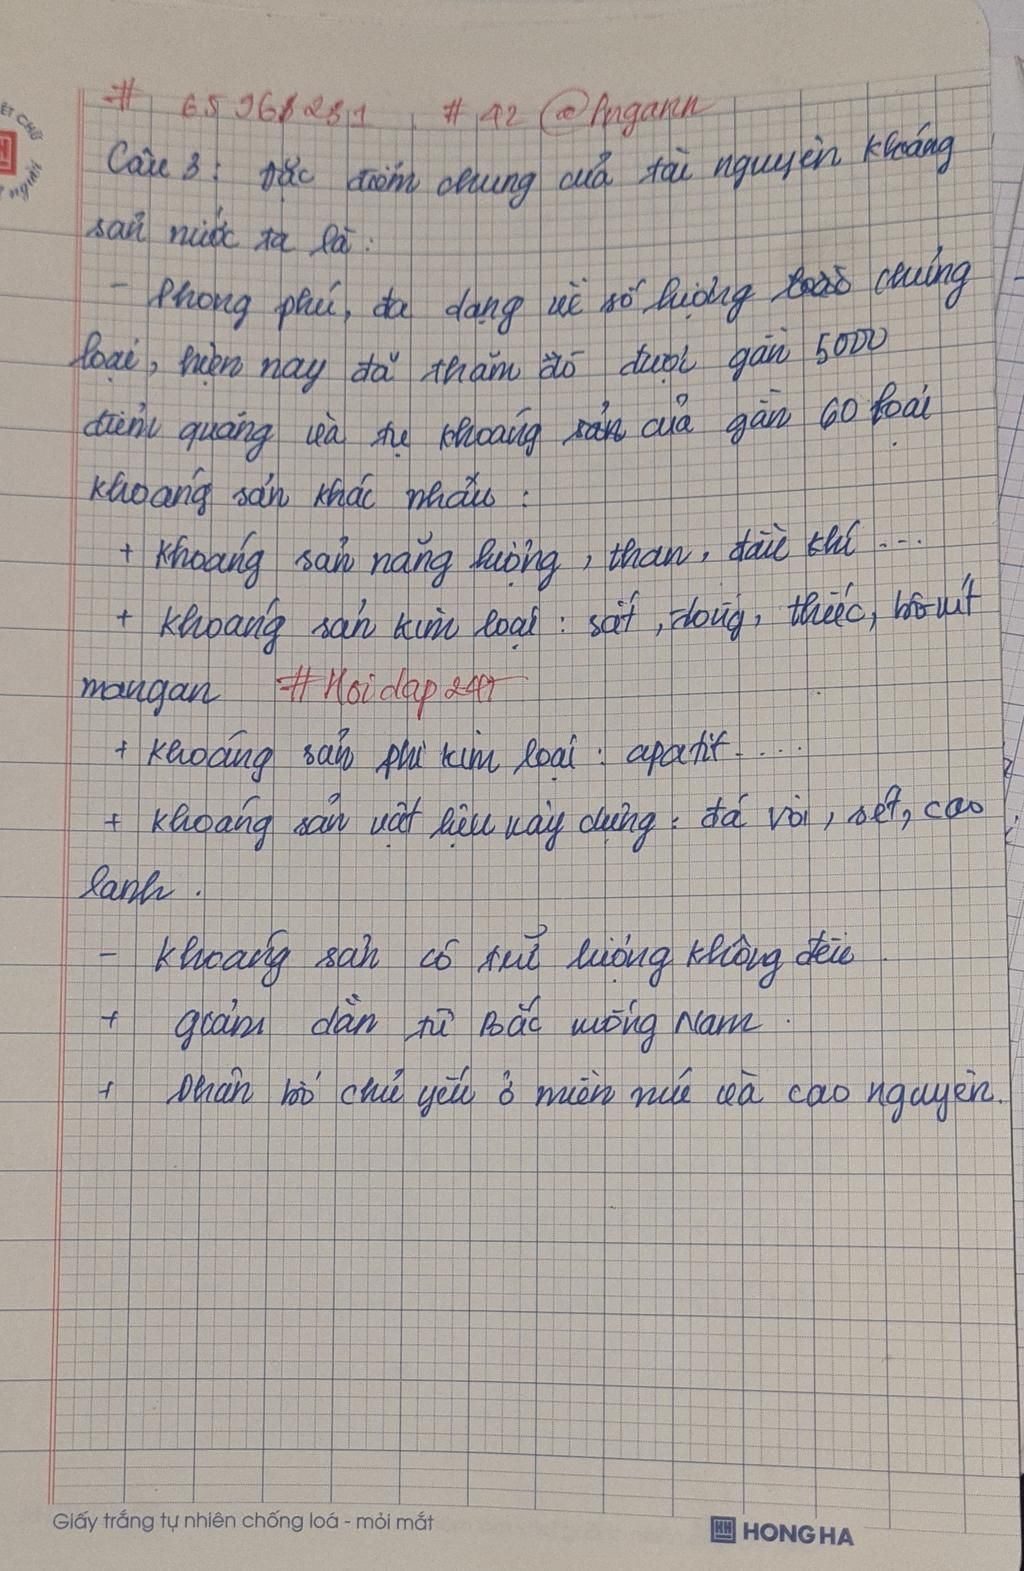 # 65968281 # 42 @Pngann
Câu 3: Đặc điểm chung của tài nguyên khoáng
sản nước ta là:
- Phong phú, đa dạng về số lượng chủng
loại, hiện nay đã thăm dò được gần 5000
điểm quặng và tụ khoáng sản của gần 60 loại
khoáng sản khác nhau:
+ Khoáng sản năng lượng, than, dầu khí ...
+ Khoáng sản kim loại: sắt, đồng, thiếc, bô-xít
mangan #Hoidap247
+ Khoáng sản phi kim loại: apatit....
+ Khoáng sản vật liệu xây dựng: đá vôi, sét, cao
lanh.
- Khoáng sản có trữ lượng không đều.
+ giảm dần từ Bắc xuống Nam.
+ phân bố chủ yếu ở miền núi và cao nguyên.
Giấy trắng tự nhiên chống loá - mỏi mắt
HONG HA